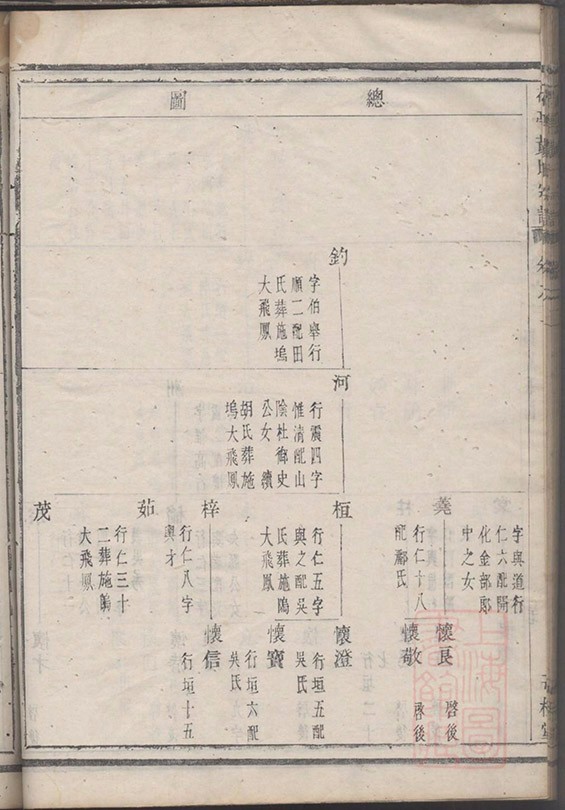 總圖
字與道行
仁六配開
化金部郎
中之女
羲
懷良
啓後
行仁十八
配鄰氏
懷敬
啓後
鈞
字伯舉行
順二配田
氏葬施塢
大飛鳳
河
行震四字
惟清配山
陰杜御史
公女續
胡氏葬施
塢大飛鳳
桓
行仁五字
與之配吳
氏葬施塢
大飛鳳
懷澄
行垣五配
吳氏
懷寶
行垣六配
吳氏
梓
行仁八字
與才
懷信
行垣十五
茹
行仁三十
二葬施塢
大飛鳳
茂
上海圖書館藏